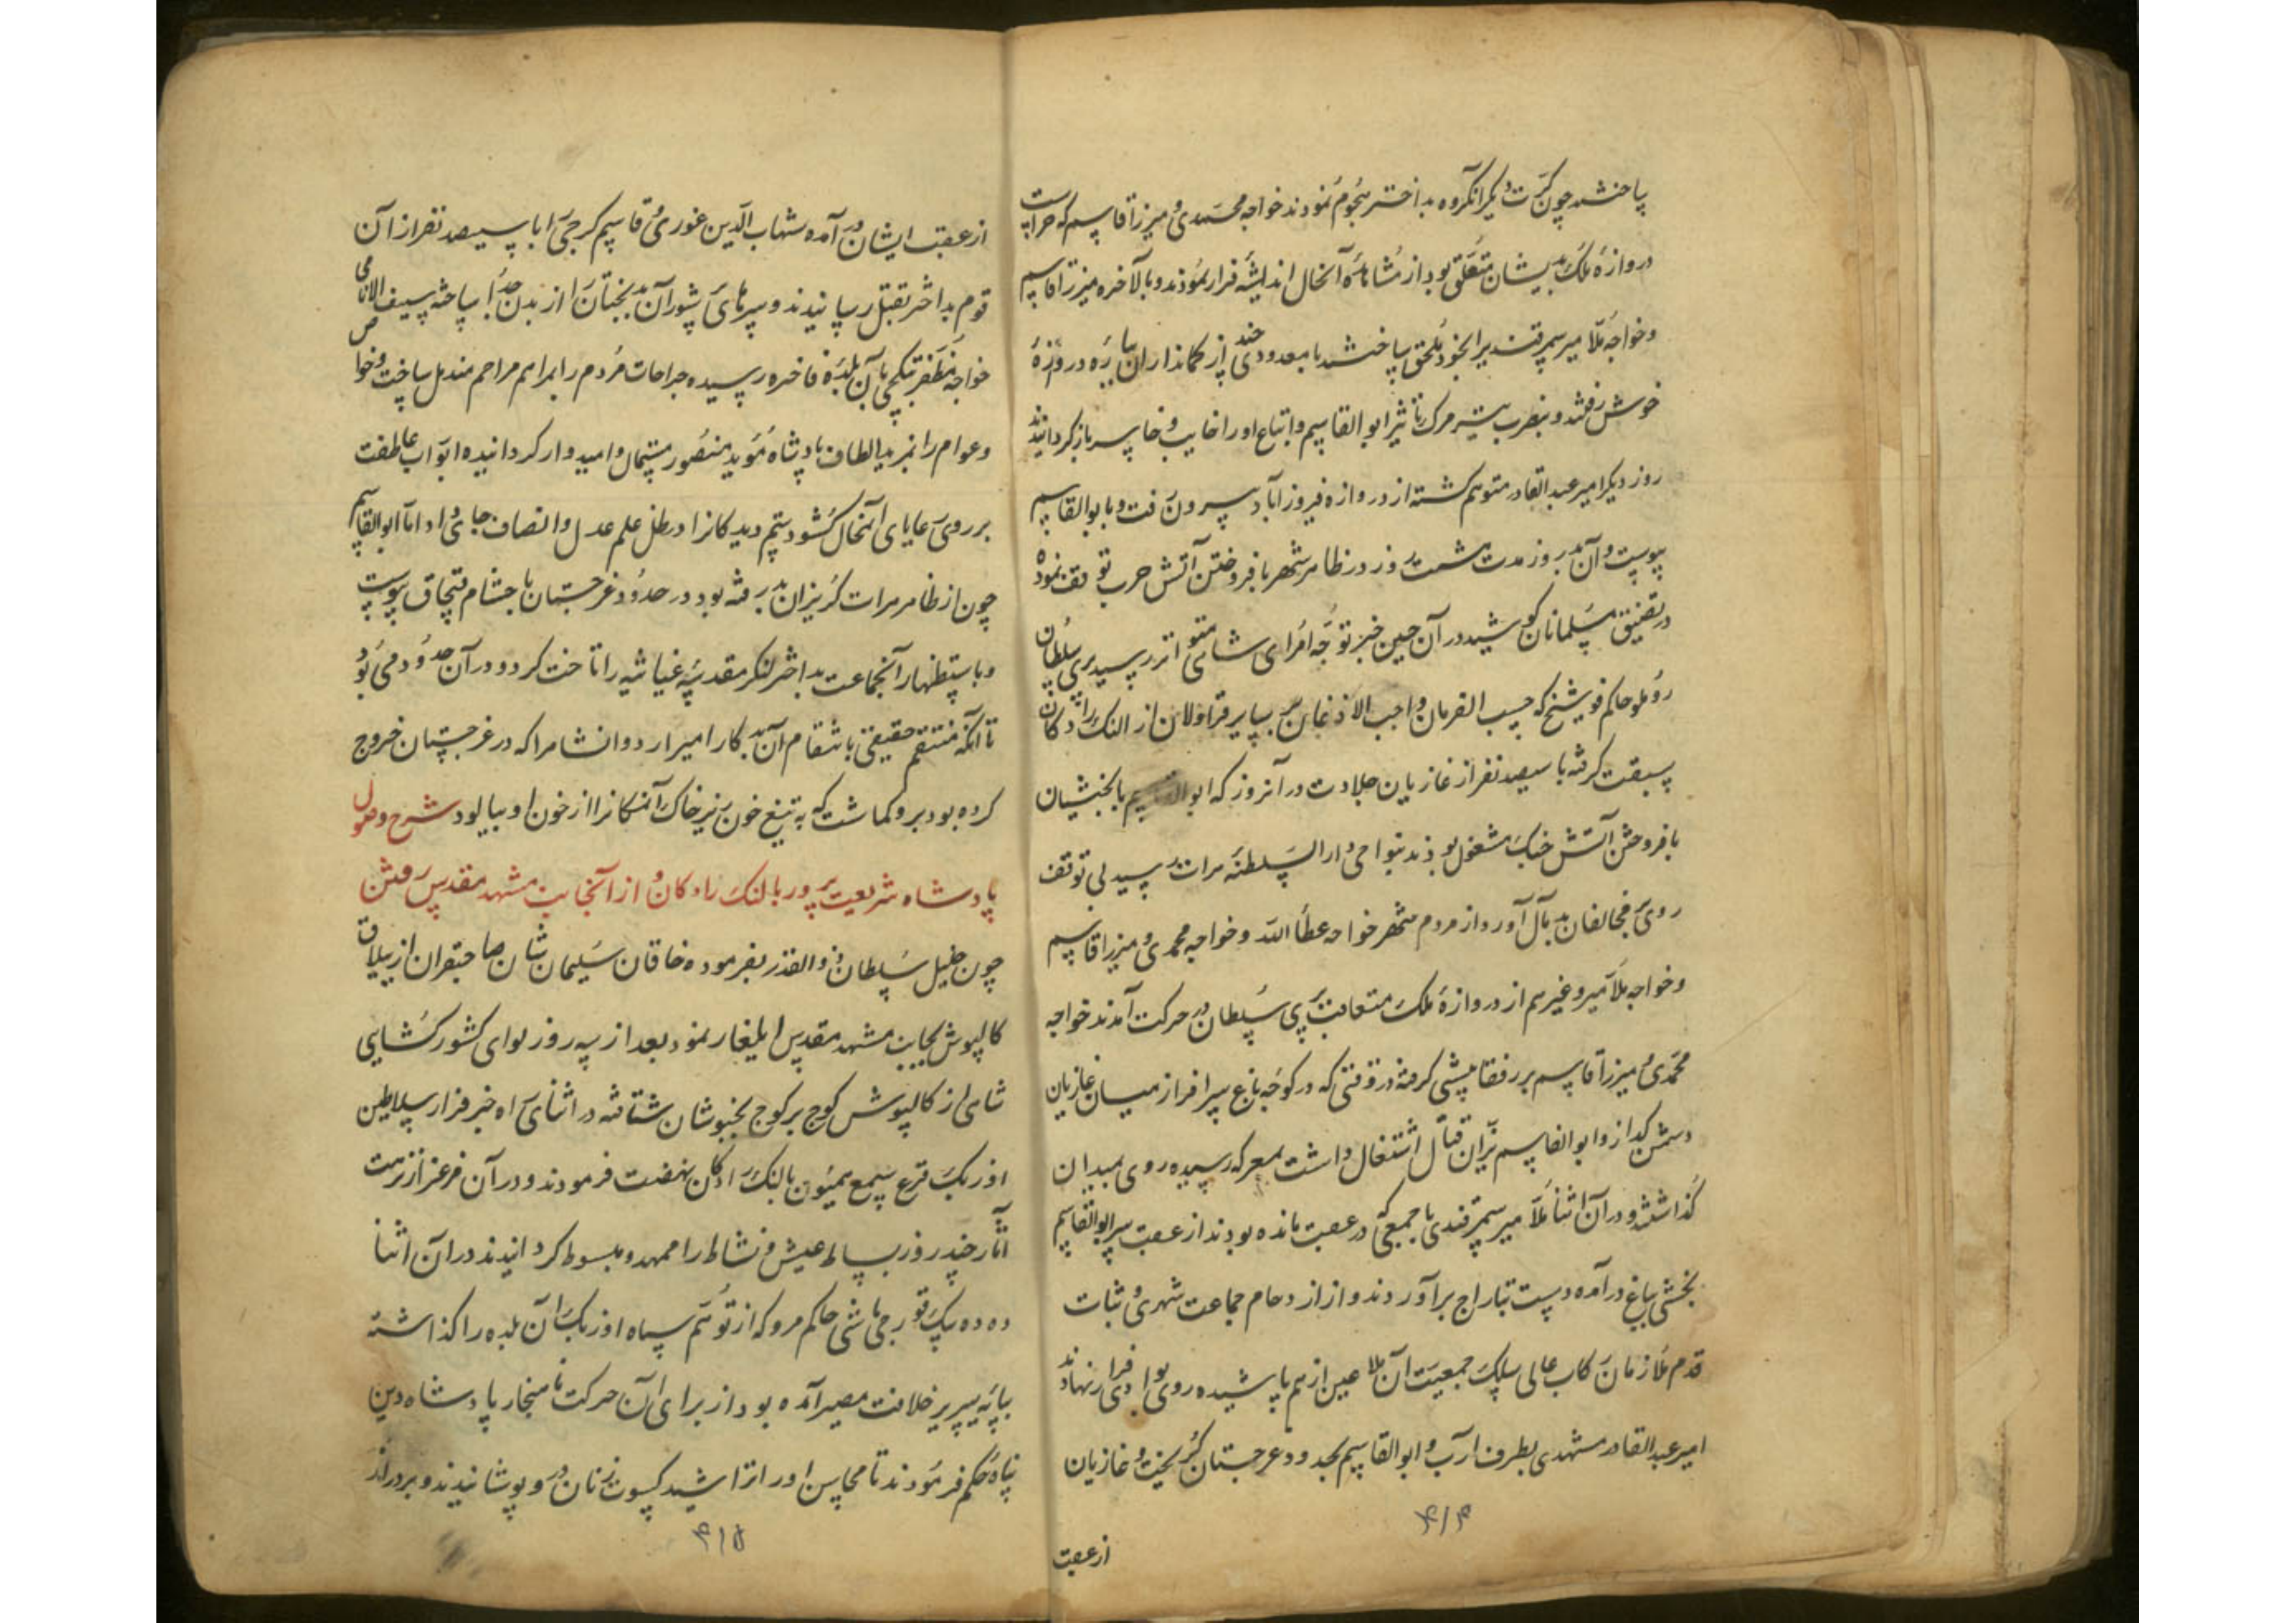 ساختند چون کرت دیگر آن گروه بداختر هجوم نمودند خواجه محمدی و میرزا قاسم که حراست
دروازه ملک بدیشان متعلق بود از مشاهده آنحال اندیشه فرار نمودند و بالاخره میرزا قاسم
و خواجه ملا میر سمرقندی را بخود ملحق ساختند با معدودی چند از کمانداران براه دروازه
خوش رفتند و بضرب تیر مرک تاثیر ابو القاسم و اتباع او را خایب و خاسر باز کردانیدند
روز دیکر امیر عبد القادر متوهم کشته از دروازه فیروزاباد بیرون رفت و بابوالقاسم
پیوست و آن بدروز مدت هشت روز در ظاهر شهر بافروختن آتش حرب توقف نموده
در تضییق مسلمانان کوشید در آن حین خبر توجه امرای شاهی متواتر رسید پیری سلطان
روملو حاکم فوشنج که حسب الفرمان واجب الاذعان بر سایر قراولان از النک رادکان
سبقت کرفته با سیصد نفر از غازیان جلادت در آنروز که ابوالقاسم بابخشیان
بافروختن آتش جنک مشغول بودند بنواحی دار السلطنه هرات رسید بی توقف
روی بمخالفان بدمآل آورد و از مردم شهر خواجه عطا الله و خواجه محمدی و میرزا قاسم
و خواجه ملا میر و غیرهم از دروازه ملک متعاقب پیری سلطان در حرکت آمدند خواجه
محمدی و میرزا قاسم بر رفقا پیشی کرفته در وقتی که در کوچه باغ سر افراز میان غازیان
دشمن کداز و ابو القاسم نیران قتال اشتغال داشت بمعرکه رسیده روی بمیدان
کذاشتند و در آن اثنا ملا میر سمرقندی با جمعی که در عقب مانده بودند از عقب سر ابوالقاسم
بخشی بباغ در آمده دست بتاراج برآوردند و از ازدحام جماعت شهری و ثبات
قدم ملازمان رکاب عالی سلک جمعیت آن ملاعین از هم پاشیده روی بوادی فرار نهادند
امیر عبد القادر مشهدی بطرف آرب و ابو القاسم بحدود غرجستان کریخت و غازیان
۴۱۴
از عقب
از عقب ایشان در آمده شهاب الدین غوری و قاسم کرجی را با سیصد نفر از آن
قوم بداختر بقتل رسانیدند و سرهای پرشور آن بدبختان را از بدن جدا ساخته سیف الانامی
خواجه مظفر تبکچی بآن بلده فاخره رسیده جراحات مردم را بمراهم مراحم مندمل ساخت و خواص
و عوام را بمزید الطاف پادشاه مؤید منصور مستمال و امیدوار کردانیده ابواب عاطفت
بر روی رعایای آنمحال کشود ستم دیدکانرا در ظل علم عدل و انصاف جای داد اما ابوالقاسم
چون از ظاهر هرات کریزان بدر رفته بود در حدود غرجستان باحشام قبچاق پیوست
و باستظهار آنجماعت بداختر لنکر مقدسه غیاثیه را تاخت کرد و در آن حدود می بود
تا آنکه منتقم حقیقی بانتقام آن بدکار امیر اردوانشاه را که در غرجستان خروج
کرده بود برو کماشت که به تیغ خون ریز خاک آنمکانرا از خون او بیالود شرح وصول
پادشاه شریعت پرور بالنک رادکان و از آنجا بمشهد مقدس رفتن
چون خلیل سلطان ذو القدر بفرموده خاقان سلیمان شان صاحبقران از ییلاق
کالپوش بجانب مشهد مقدس ایلغار نمود بعد از سه روز لوای کشورکشایی
شاهی از کالپوش کوچ بر کوچ بخبوشان شتافته در اثنای راه خبر فرار سلاطین
اوزبک قرع سمع همیون بالنک رادکان نهضت فرمودند و در آن مرغزار نزهت
آثار چند روز بساط عیش و نشاط را ممهد و مبسوط کردانیدند در آن اثنا
دده بیک قورچی باشی حاکم مرو که از توهم سپاه اوزبک آن بلده را کذاشته
بپایه سریر خلافت مصیر آمده بود از برای آن حرکت ناهنجار پادشاه دین
پناه حکم فرمودند تا محاسن او را تراشیده کسوت زنان درو پوشانیدند و بر دراز
۴۱۵